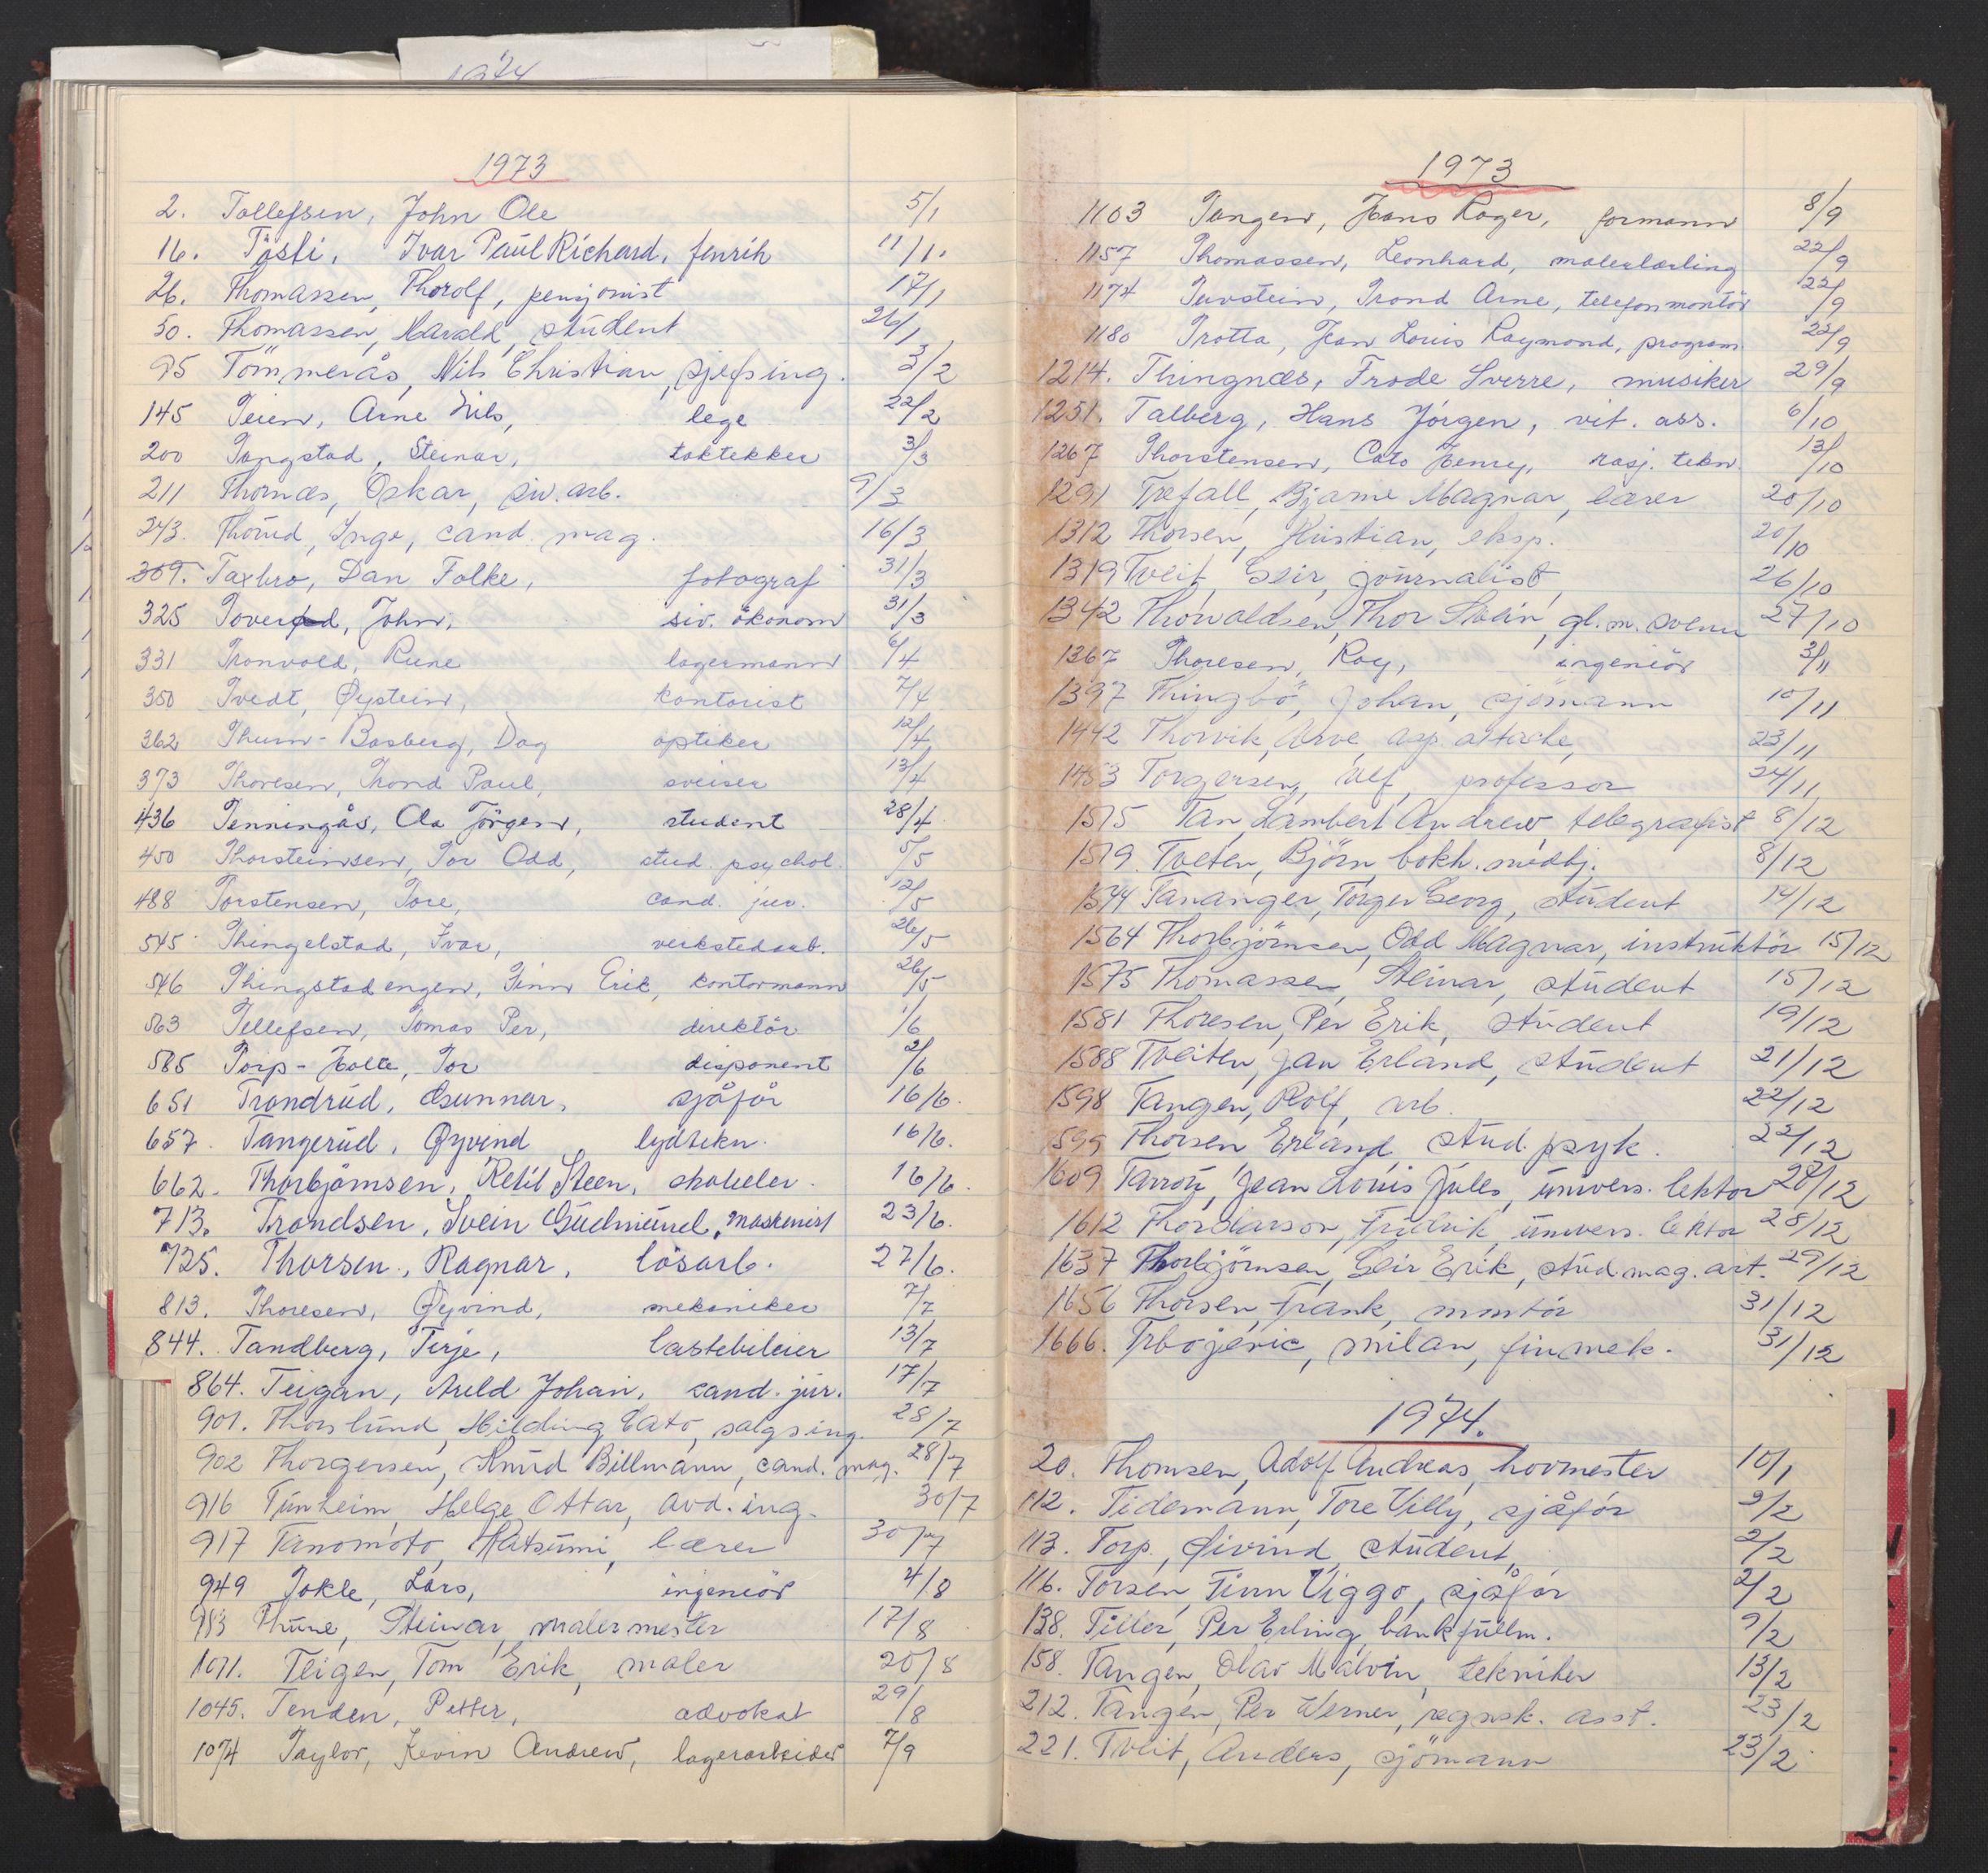 1974
1973
2. Tollefsen, John Ole 5/1
16. Tösti, Ivar Paul Richard, fenrik 11/1.
26. Thomassen, Thorolf, pensjonist 17/1
50. Thomassen, Harald, student 26/1
95 Tömmerås, Nils Christian, sjefsing. 3/2
145 Teien, Arne Nils, lege 22/2
200 Tangstad, Steinar, taktekker 3/3
211 Thornæs, Oskar, siv. arb. 9/3
243. Thorud, Inge, cand. mag. 16/3
309. Taxbro, Dan Folke, fotograf 31/3
325 Toverud, John, siv. ökonom 31/3
331 Tronvold, Rune lagermann 6/4
350 Tvedt, Øystein, kontorist 7/4
362 Thurn-Basberg, Dag optiker 12/4
373 Thoresen, Trond Paul, sveiser 13/4
436 Tenningås, Ola Jörgen, student 28/4
450 Thorsteinsen, Tor Odd, stud. psychol. 5/5
488 Torstensen, Tore, cand. jur. 12/5
545 Thingelstad, Ivar, verkstedarb. 26/5
546 Thingstadengen, Finn Erik, kontormann 26/5
563 Tellefsen, Tomas Per, direktör 1/6
585 Torp-Holte, Tor disponent 2/6
651 Trondrud, Gunnar, sjåför 16/6.
657. Tangerud, Øyvind lydtekn. 16/6.
662. Thorbjörnsen, Ketil Steen, 16/6.
713. Trondsen, Svein Gudmund, maskinist 23/6.
725. Thorsen, Ragnar, lösarb. 27/6.
813. Thoresen, Øyvind, mekaniker 7/7
844. Tandberg, Terje, lastebileier 13/7
864. Teigan, Arild Johan, cand. jur. 17/7
901. Thorslund, Hilding Cato, salgsing. 28/7
902 Thorgersen, Knud Billmann, cand. mag. 28/7
916 Tunheim, Helge Ottar, avd. ing. 30/7
917 Tanomoto, Katsumi, lærer 30/7
949 Tokle, Lars, ingeniör 4/8
983 Thune, Steinar, malermester 17/8
1011. Teigen, Tom Erik, maler 20/8
1045. Tenden, Petter, advokat 29/8
1074 Taylor, Kevin Andrew, lagerarbeider 7/9
1973
1103 Tangen, Hans Roger, formann 8/9
1157 Thomassen, Leonhard, malerlærling 22/9
1174 Tuvstein, Trond Arne, telefonmontör 22/9
1180 Trotta, Jean Louis Raymond, program. 22/9
1214. Thingnæs, Frode Sverre, musiker 29/9
1251. Talberg, Hans Jörgen, vit. ass. 6/10
1267 Thorstensen, Cato Henry, rasj. tekn. 13/10
1291 Trefall, Bjarne Magnar, lærer 20/10
1312 Thorsen, Kristian, eksp. 20/10
1319 Tveit, Geir, journalist, 26/10
1342 Thorvaldsen, Thor Svein, gl.m. svenn 27/10
1367 Thoresen, Roy, ingeniör 3/11
1397 Thingbö, Johan, sjömann 10/11
1442 Thorvik, Arve, asp. attache, 23/11
1453 Torgersen, Ulf, professor 24/11
1515 Tan, Lambert Andrew, telegrafist 8/12
1519. Tveten, Björn, bokh. medhj. 8/12
1544 Tananger, Torger Georg, student 14/12
1564 Thorbjörnsen, Odd Magnar, instruktör 15/12
1575 Thomassen, Steinar, student 15/12
1581 Thoresen, Per Erik, student 19/12
1588 Tveiten, Jan Erland, student 21/12
1598 Tangen, Rolf, arb. 22/12
1599 Thorsen Erland, stud. psyk. 22/12
1609 Tarrou, Jean Louis Jules, univers. lektor 28/12
1612 Thordarson, Fridrik, univers. lektor 28/12
1637 Thorbjörnsen, Geir Erik, stud. mag. art. 29/12
1656 Thorsen, Frank, montör 31/12
1666. Trbojevic, Milan, finmek. 31/12
1974.
20. Thomsen, Adolf Andreas, hovmester 10/1
112. Tidemann, Tore Villy, sjåför 2/2
113. Torp, Øivind, student, 2/2
116. Torsen, Finn Viggo, sjåför 2/2
138. Tiller, Per Erling, bankfullm. 9/2
158. Tangen, Olav Malvin, tekniker 13/2
212. Tangen, Per Werner, regnsk. asst. 23/2
221. Tveit, Anders, sjömann 23/2.